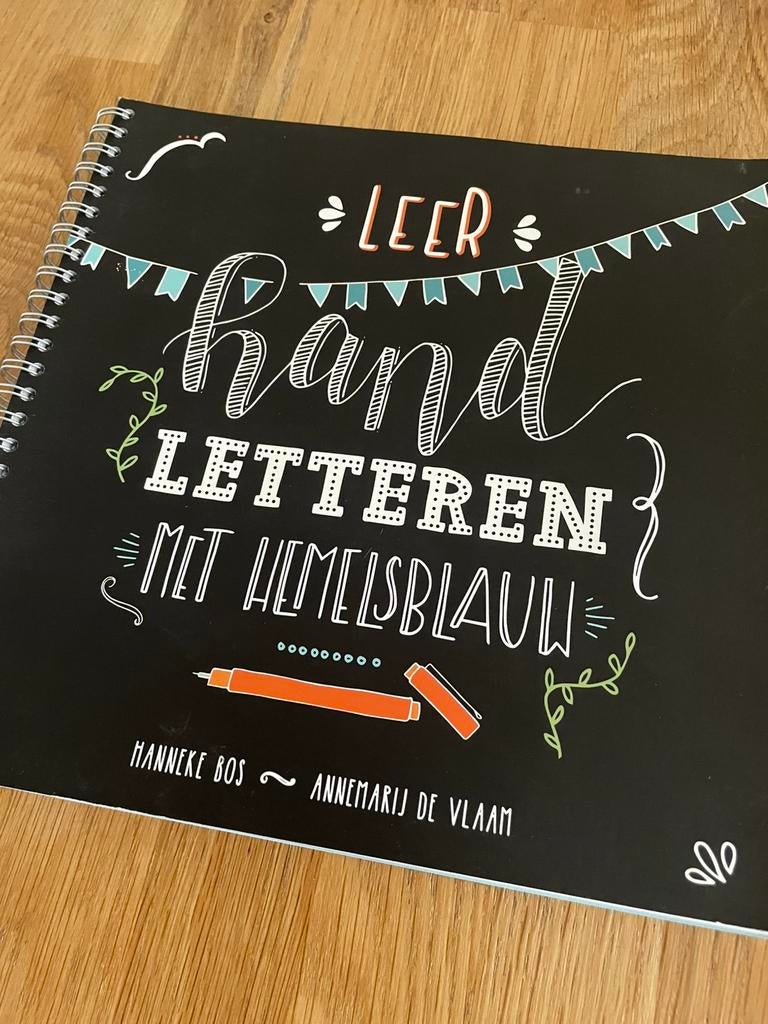 LEER
hand
LETTEREN
MET HEMELSBLAUW
HANNEKE BOS ~ ANNEMARIJ DE VLAAM